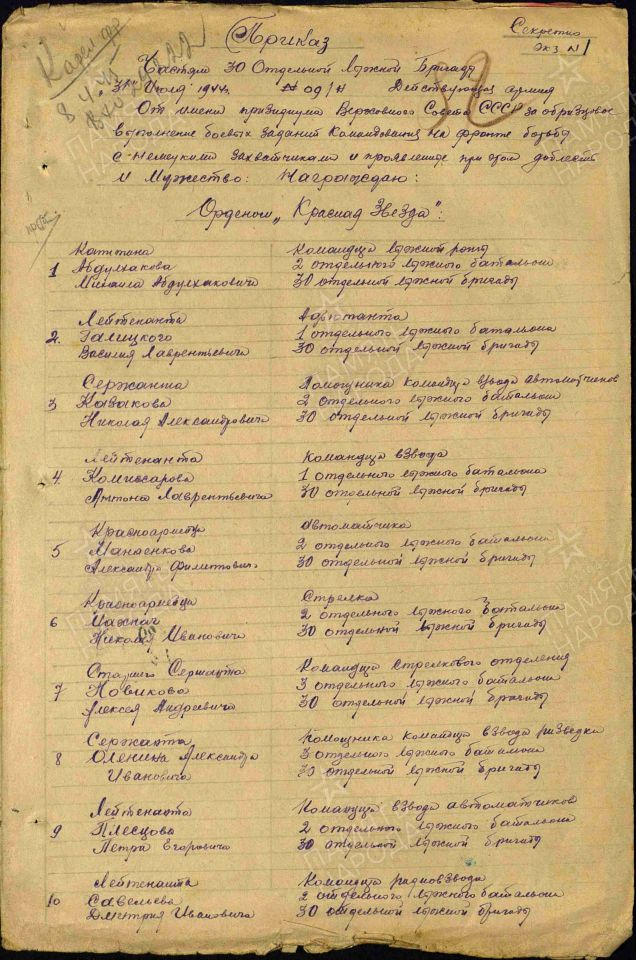 Секретно
экз N 1
Приказ
Карел фр
Частям 30 Отдельной Лыжной Бригады
"31" Июля 1944г. № 09/н Действующая армия
От имени президиума Верховного Совета СССР за образцовое
выполнение боевых заданий Командования на фронте борьбы
с немецкими захватчиками и проявленные при этом доблесть
и Мужество: Награждаю:
Орденом "Красная Звезда":
1 Капитана Командира лыжной роты
Абдулхакова 2 отдельного лыжного батальона
Михаила Абдулхаковича 30 отдельной лыжной бригады
2. Лейтенанта Адъютанта
Галицкого 1 отдельного лыжного батальона
Василия Лаврентьевича 30 отдельной лыжной бригады
3 Сержанта Помощника командира взвода автоматчиков
Казакова 2 отдельного лыжного батальона
Николая Александровича 30 отдельной лыжной бригады
4. Лейтенанта Командира взвода
Комиссарова 1 отдельного лыжного батальона
Антона Лаврентьевича 30 отдельной лыжной бригады
5 Красноармейца автоматчика
2 отдельного лыжного батальона
Александра 30 отдельной лыжной бригады
6 Красноармейца Стрелка
2 отдельного лыжного батальона
Николая Ивановича 30 отдельной лыжной бригады
7 Старшего Сержанта Командира стрелкового отделения
Новикова 3 отдельного лыжного батальона
Алексея Андреевича 30 отдельной лыжной бригады
8 Сержанта Помощника командира взвода разведки
Оленина Александра 3 отдельного лыжного батальона
Ивановича 30 отдельной лыжной бригады
9 Лейтенанта Командира взвода автоматчиков
Плесцова 2 отдельного лыжного батальона
Петра Егоровича 30 отдельной лыжной бригады
10 Лейтенанта Командира радиовзвода
Савельева 2 отдельного лыжного батальона
Дмитрия Ивановича 30 отдельной лыжной бригады